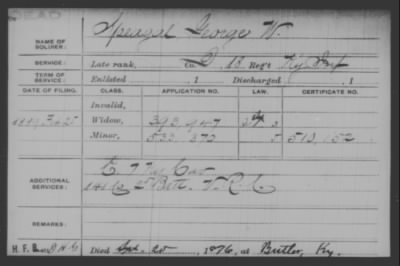 DEAD
NAME OF SOLDIER: Speagal George W.
SERVICE: Late rank, Co. D, 18 Reg't Ky Inf
TERM OF SERVICE: Enlisted , 1 Discharged , 1
DATE OF FILING. CLASS. APPLICATION NO. LAW. CERTIFICATE NO.
Invalid,
Widow, 393,947
Minor, 533,372 513,152
ADDITIONAL SERVICES: E. 7 Ky Cav
141 Co 2 Batt. V.R.C.
REMARKS:
H. F. B.
Died Sept. 20, 1876, at Butler, Ky.